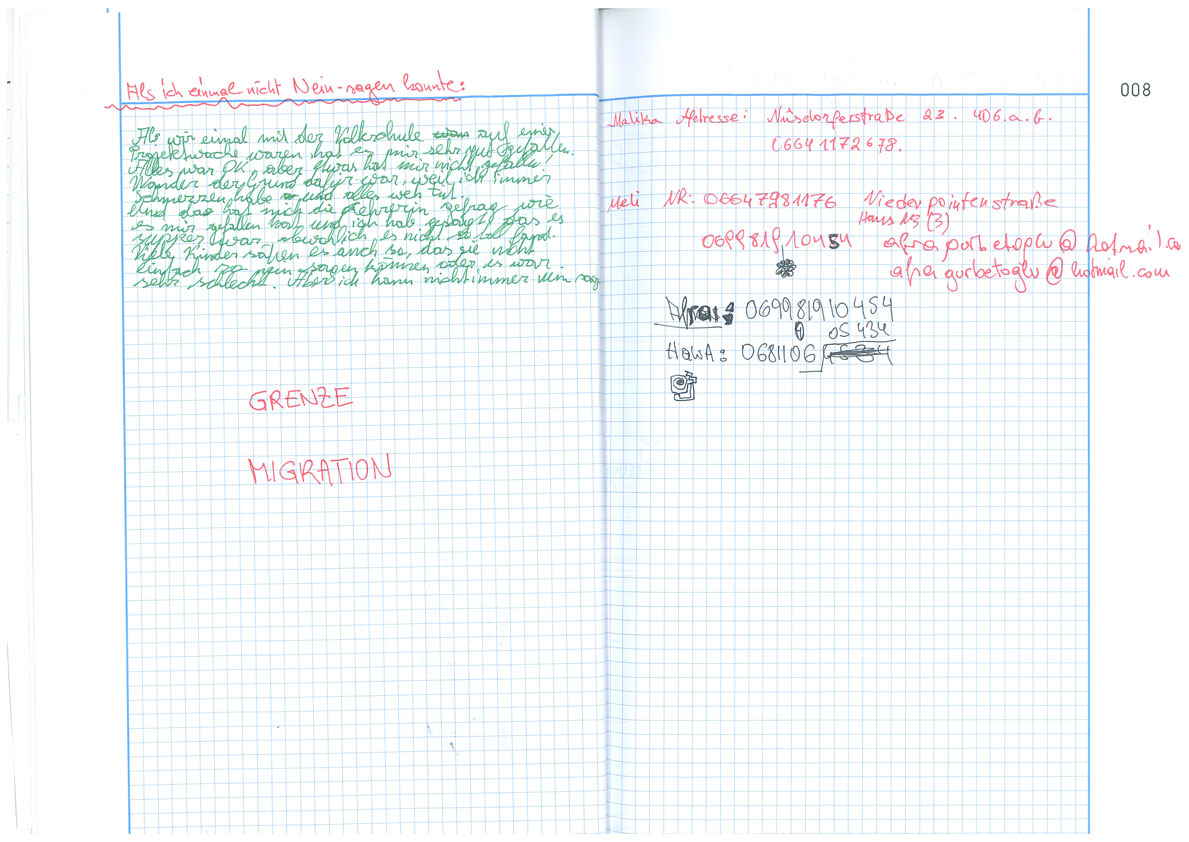 Als ich einmal nicht Nein-sagen konnte:
Als wir einmal mit der Volkschule auf einer
Projektwoche waren hat es mir sehr gut gefallen.
Alles war OK, aber etwas hat mir nicht gefallen,
Wander der Grund dafür war, weil ich immer
schmerzen habe und alles weh tut.
Und das hat mich die Lehrerin gefrag, wie
es mir gefallen hat und ich hab gesagt, das es
supper war, obwohlich es nicht so
Viele Kinder es auch so, das sie nicht
einfach so nein-sagen können oder es war
sehr schlecht. Aber ich kann nicht immer nein sag
GRENZE
MIGRATION
008
Malika Adresse: Nüsdorferstraße 23. 406.a.b.
06641172678.
Meli NR: 06647981176 Niederpointenstraße
Haus N3 (3)
0699819,10454
afragurbetoglu@hotmail.com
Afra: 069981910454
05434
HawA: 0681106